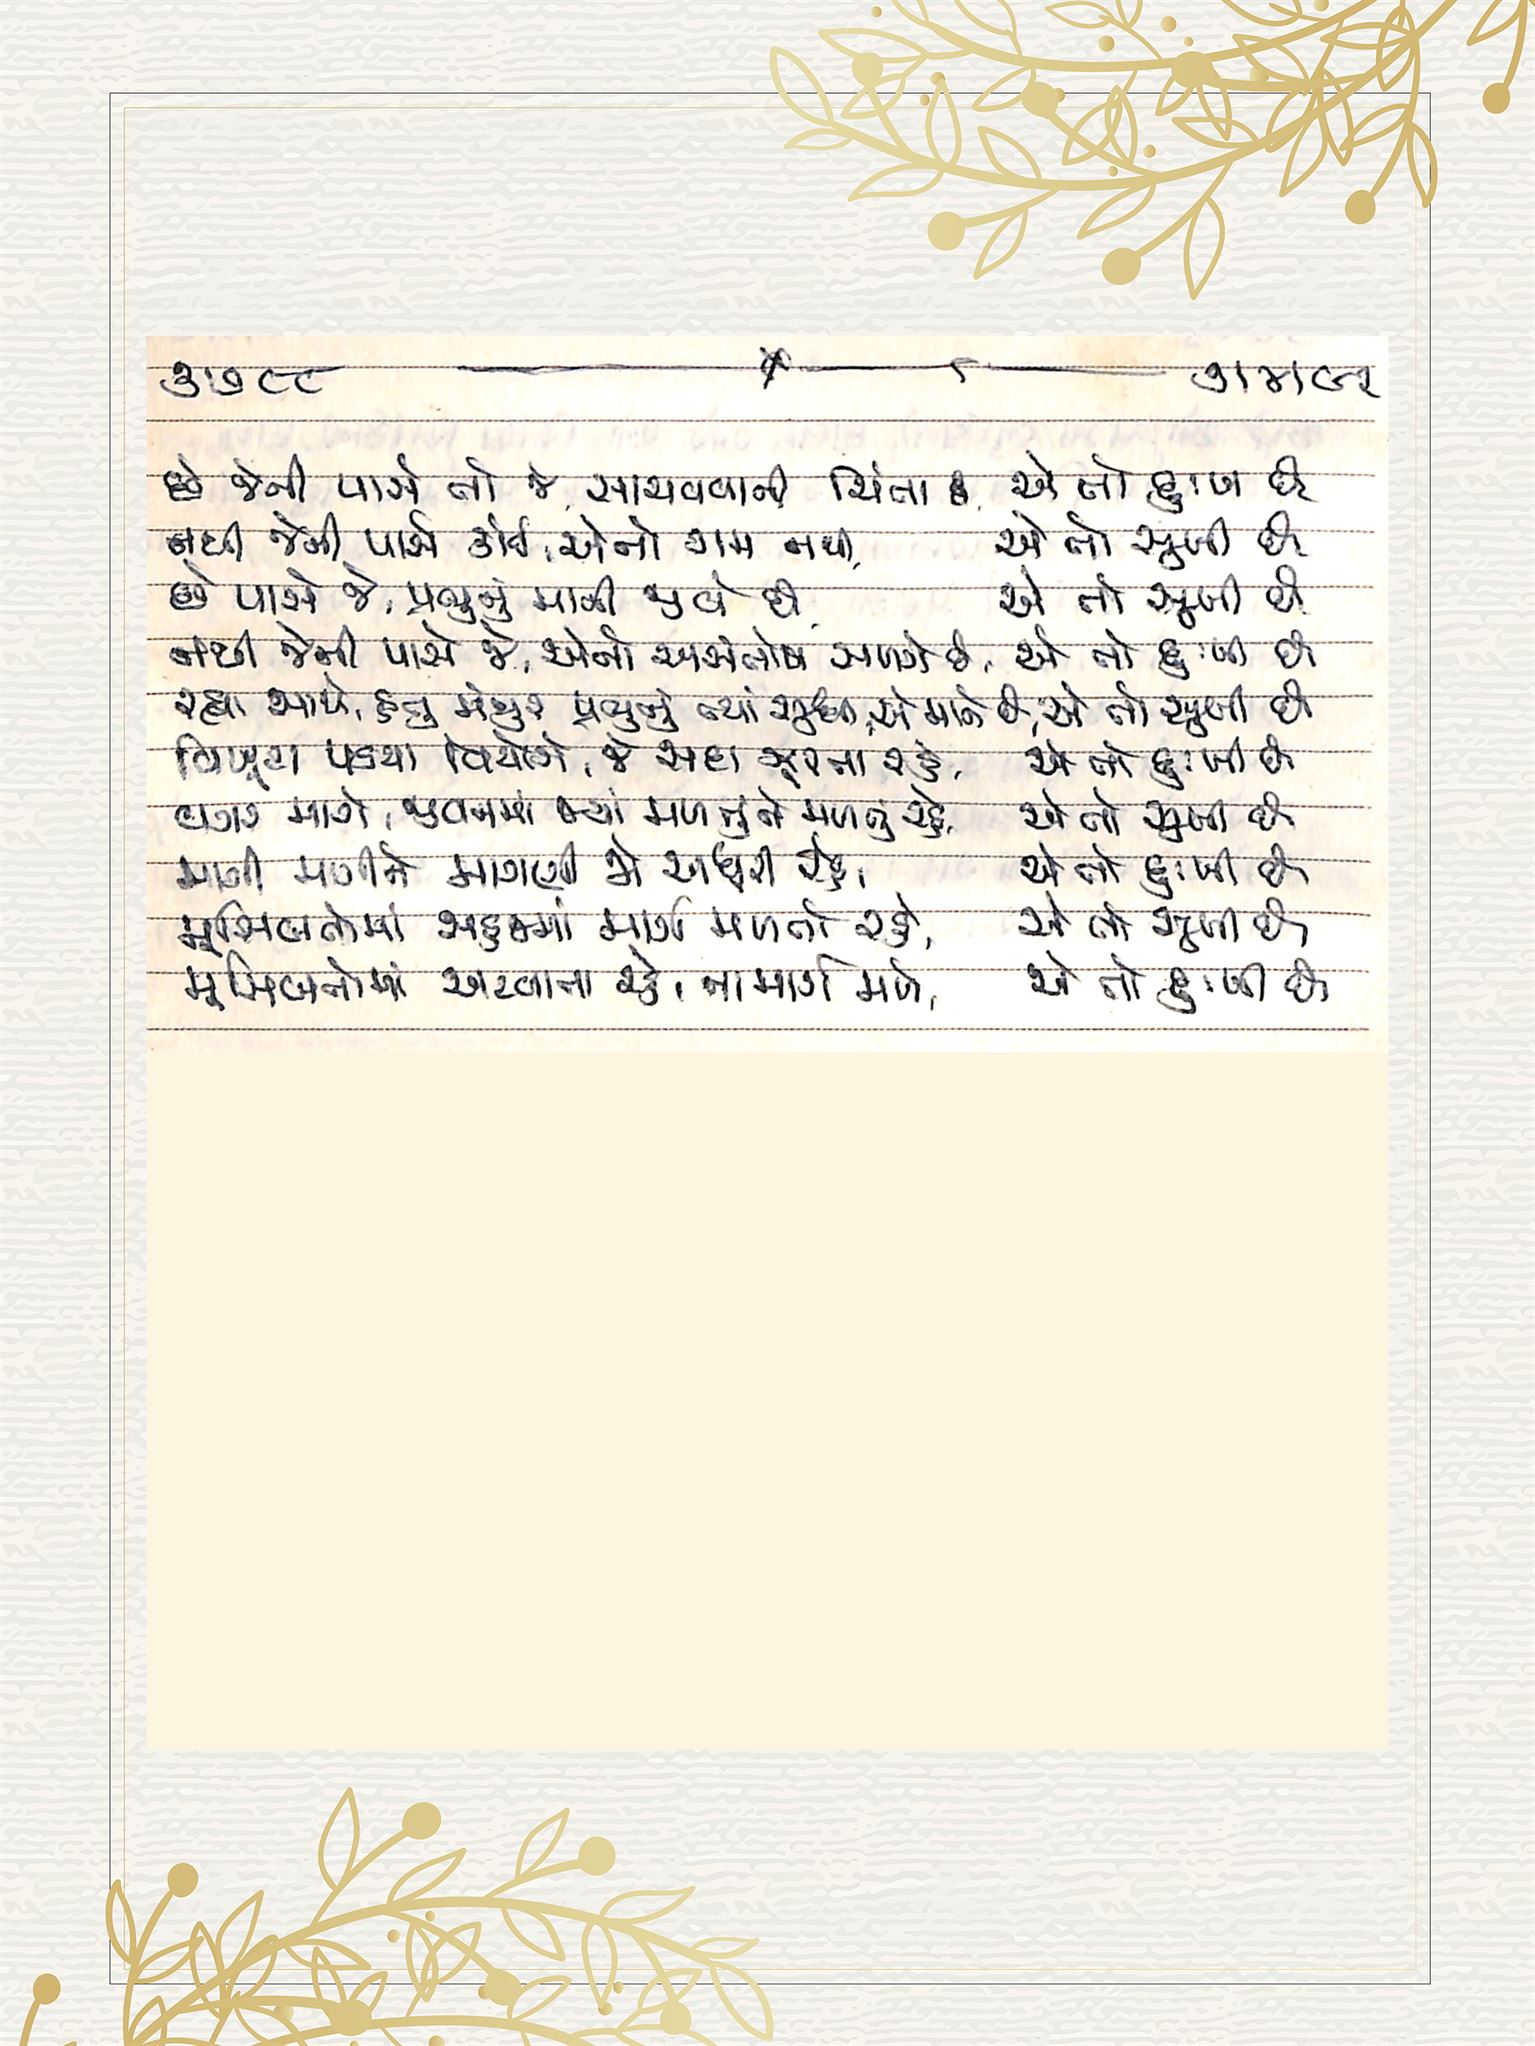 ૩૭૮૮ ૭।૪।૯૨
છે જેની પાસે તો જે, સાચવવાની ચિંતા છે, એ તો દુઃખી છે
નથી જેની પાસે કાંઈ, એનો ગમ નથી, એ તો સુખી છે
છે પાસે જે, પ્રભુનું માની જીવે છે, એ તો સુખી છે
નથી જેની પાસે જે, એનો અસંતોષ સળગે છે, એ તો દુઃખી છે
રહ્યા સાથે, હતું મંજુર પ્રભુનું ત્યાં સુધી, એ માને છે, એ તો સુખી છે
વિખૂટા પડયા વિયોગે, જે સદા ઝૂરતા રહે, એ તો દુઃખી છે
વગર માગે, જીવનમાં જ્યાં મળતું ને મળતું રહે, એ તો સુખી છે
માગી માગીને માગણી જો અધૂરી રહે, એ તો દુઃખી છે
મૂસિબતોમાં સહજમાં માર્ગ મળતો રહે, એ તો સુખી છે
મૂસિબતોમાં અટવાતા રહે, ના માર્ગ મળે, એ તો દુઃખી છે